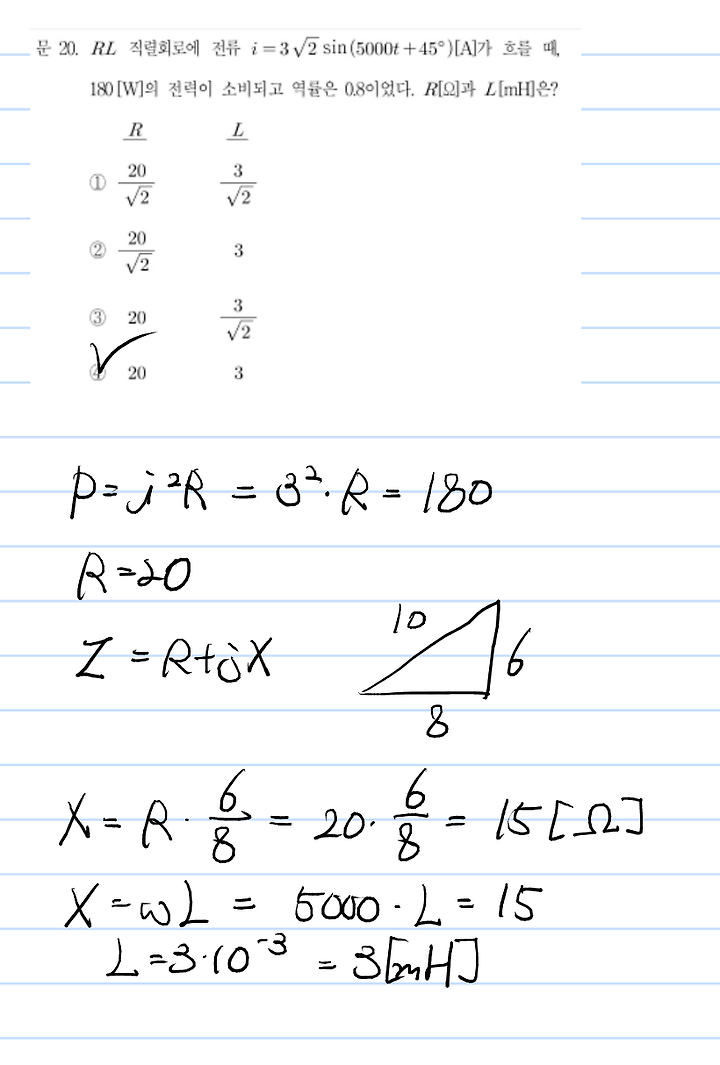 문 20. RL 직렬회로에 전류 i=3√2 sin(5000t+45°)[A]가 흐를 때,
180[W]의 전력이 소비되고 역률은 0.8이었다. R[Ω]과 L[mH]은?
R L
① 20/√2 3/√2
② 20/√2 3
③ 20 3/√2
④ 20 3
P=i²R = 3²·R = 180
R=20
10
Z = R+jX
6
8
X = R · 6/8 = 20· 6/8 = 15[Ω]
X = ωL = 5000 · L = 15
L=3·10⁻³ = 3[mH]